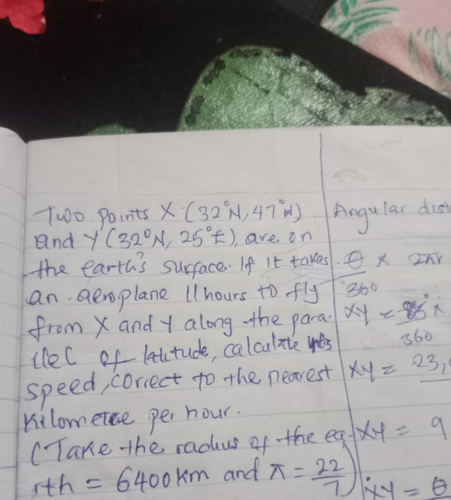 Two points X (32°N, 47°W)
and Y (32°N, 25°E), are on
the earth's surface. If it takes
an aeroplane 11 hours to fly
from X and Y along the para-
llel of latitude, calculate its
speed, correct to the nearest
kilometre per hour.
(Take the radius of the ea-
rth = 6400km and π = 22/7
Angular dist
θ/360 × 2πr
XY =
360
XY = 23,
XY = 9
XY = θ